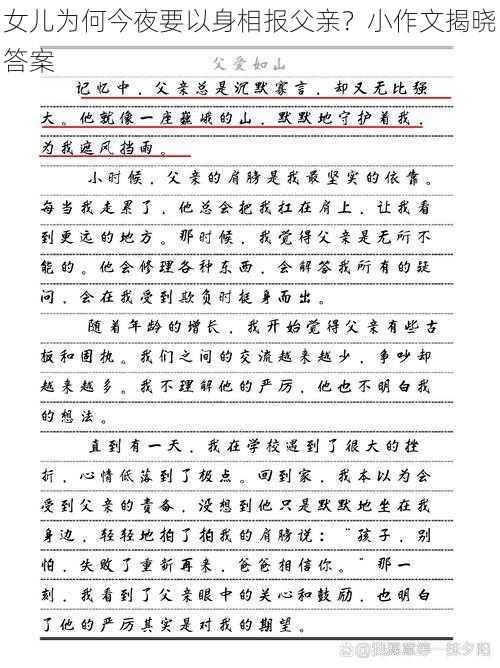 女儿为何今夜要以身相报父亲？小作文揭晓
答案
父爱如山
记忆中，父亲总是沉默寡言，却又无比强
大。他就像一座巍峨的山，默默地守护着我，
为我遮风挡雨。
小时候，父亲的肩膀是我最坚实的依靠。
每当我走累了，他总会把我扛在肩上，让我看
到更远的地方。那时候，我觉得父亲是无所不
能的。他会修理各种东西，会解答我所有的疑
问，会在我受到欺负时挺身而出。
随着年龄的增长，我开始觉得父亲有些古
板和固执。我们之间的交流越来越少，争吵却
越来越多。我不理解他的严厉，他也不明白我
的想法。
直到有一天，我在学校遇到了很大的挫
折，心情低落到了极点。回到家，我本以为会
受到父亲的责备，没想到他只是默默地坐在我
身边，轻轻地拍了拍我的肩膀说：“孩子，别
怕，失败了重新再来，爸爸相信你。”那一
刻，我看到了父亲眼中的关心和鼓励，也明白
了他的严厉其实是对我的期望。